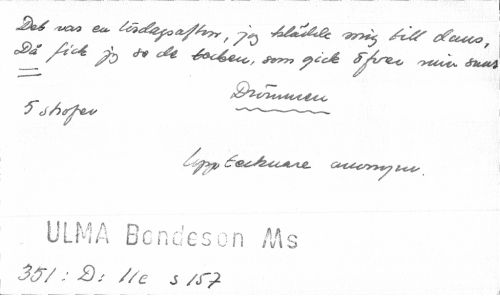 Det var en lördagsafton, jg klädde mig till dans,
Då fick jg se de tecken, som gick öfver min sans
Drömmen
5 strofer
Upptecknare anonym.
ULMA Bondeson Ms
351: D: 11e s 157